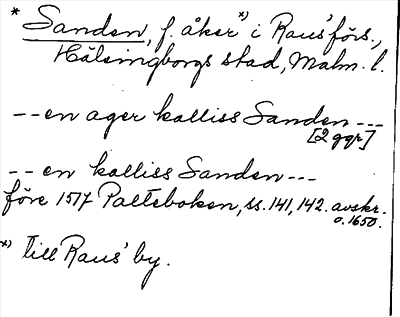 * Sanden, f. åker *) i Raus' förs.,
Hälsingborgs stad, Malm. l.
-- en ager kalliss Sanden ---
[2 ggr]
-- en kalliss Sanden ---
före 1517 Palteboken, ss. 141, 142. avskr.
o. 1650.
*) till Raus' by.